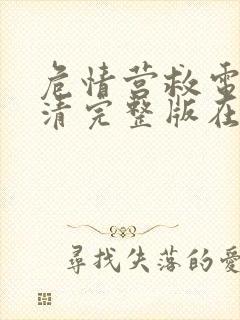 危情营救電
清完整版在
尋找失落的愛